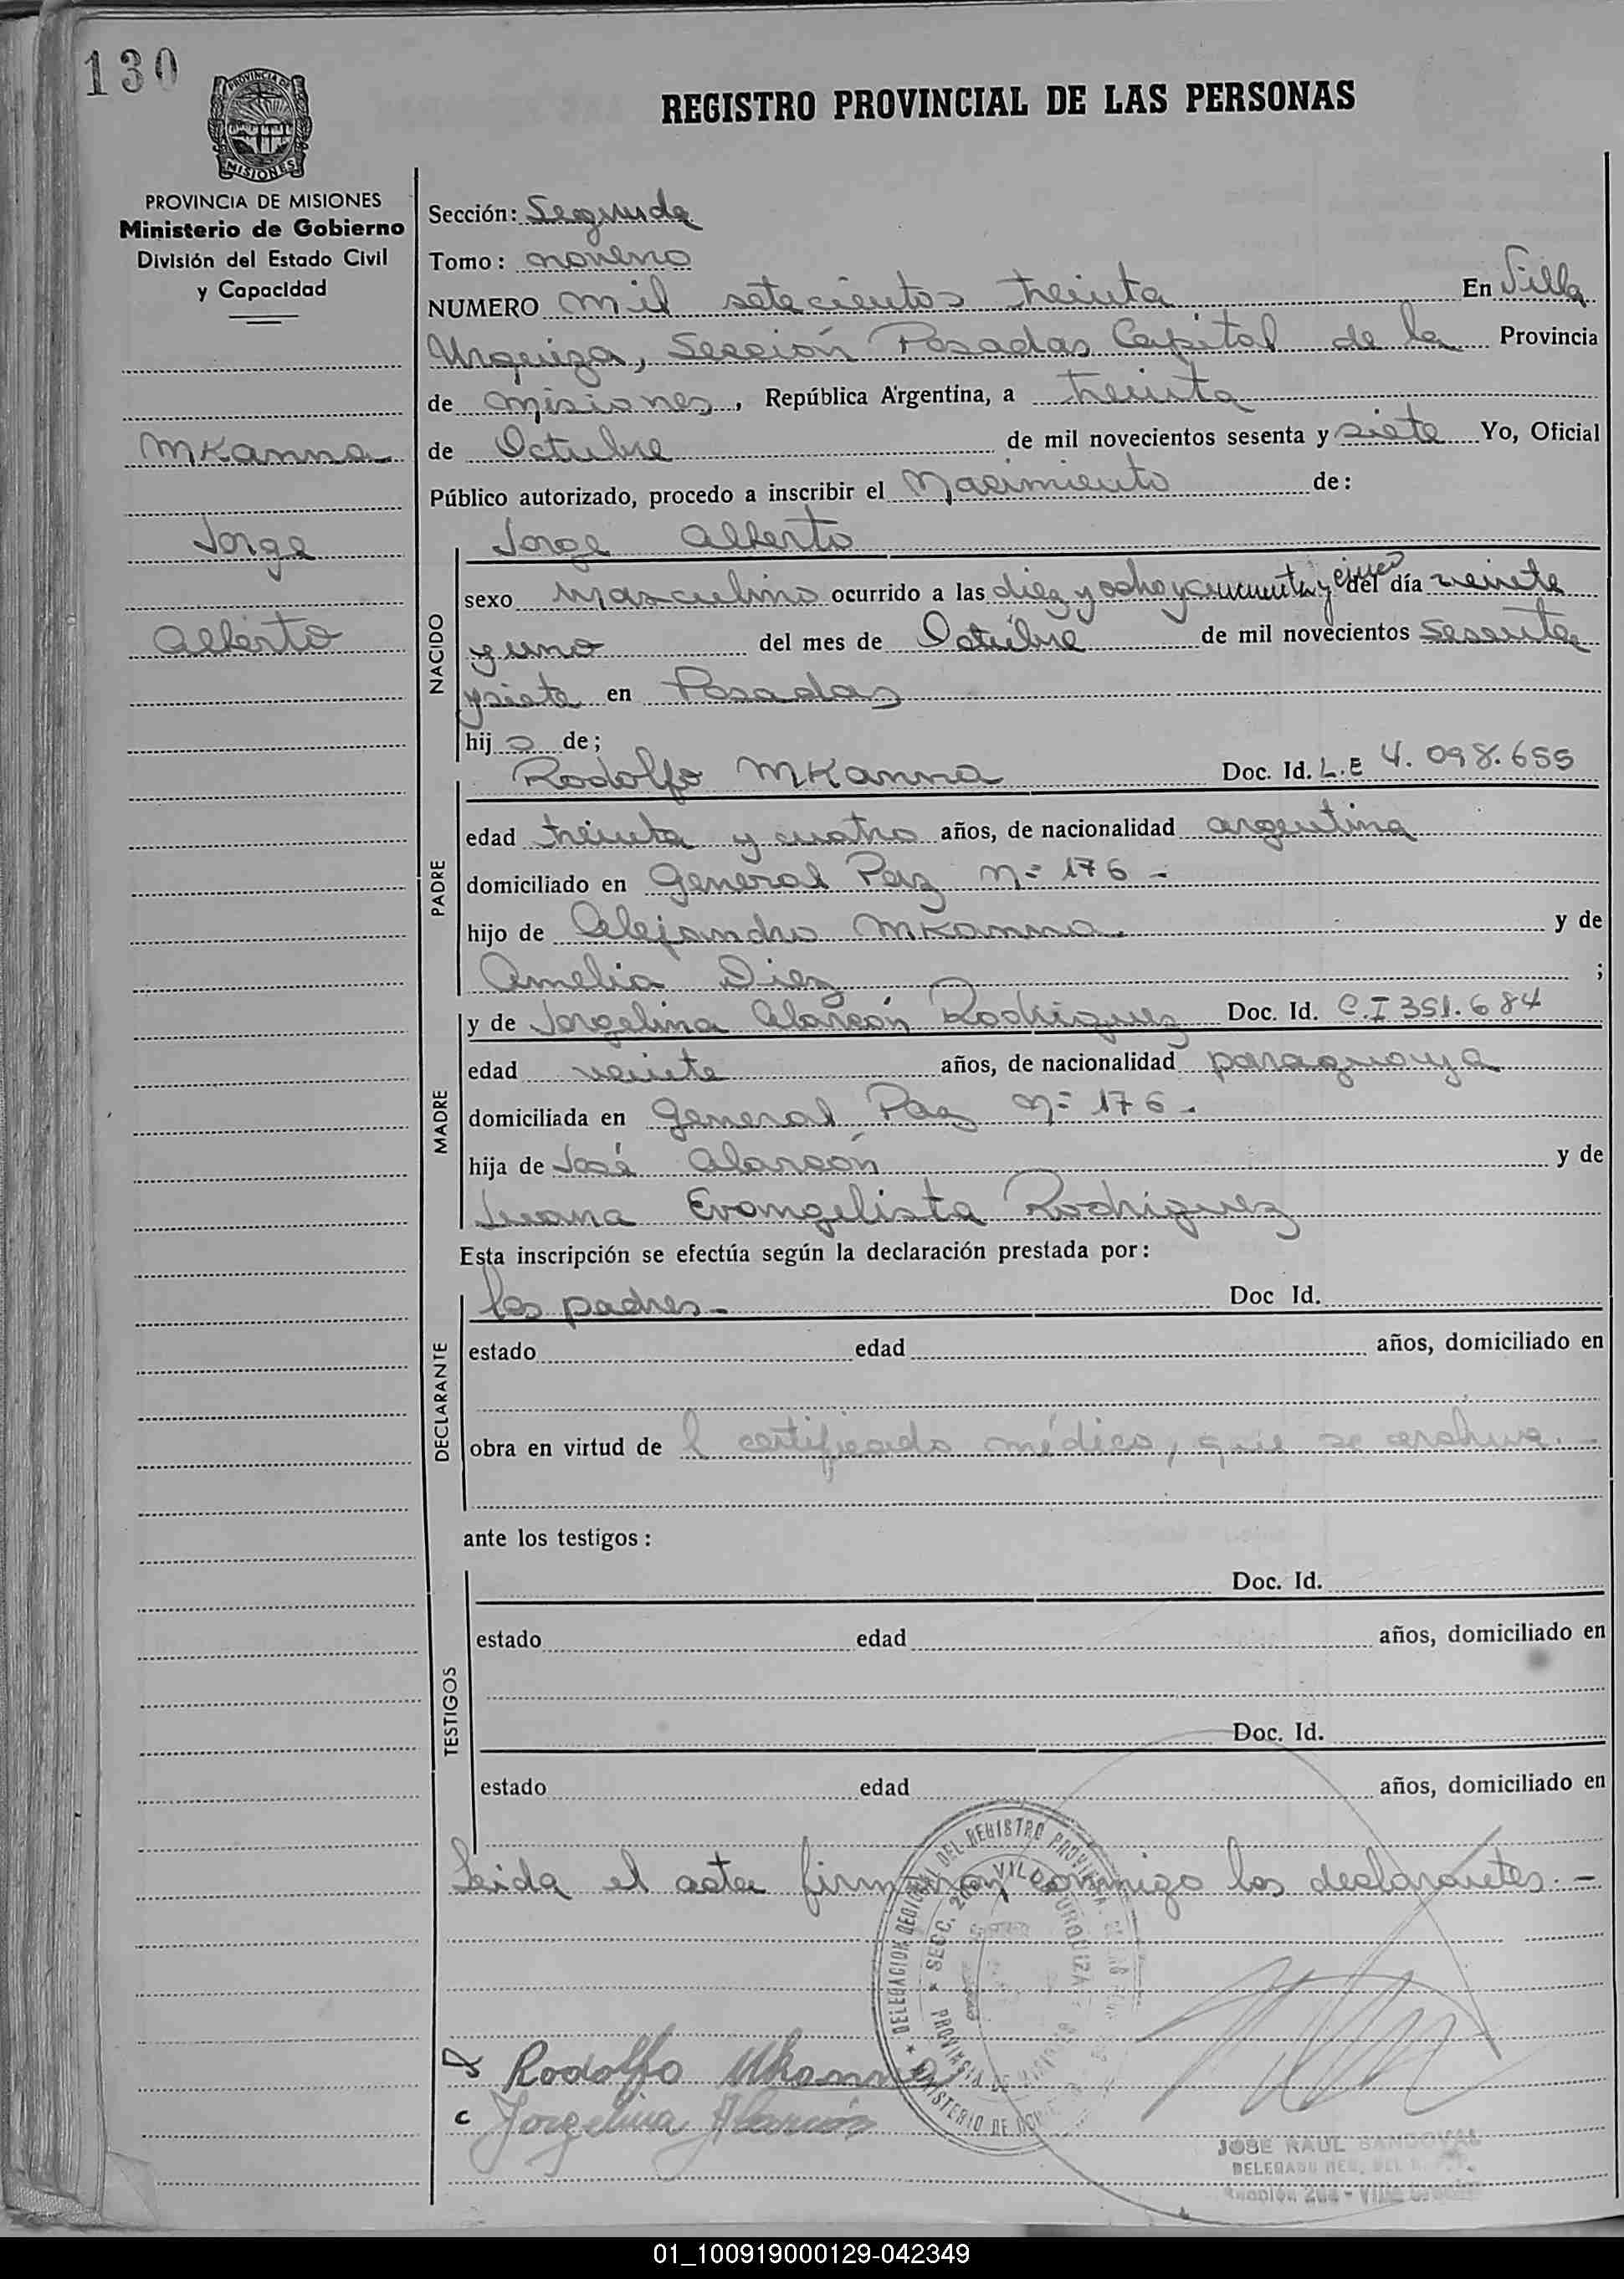 130
PROVINCIA DE
MISIONES
REGISTRO PROVINCIAL DE LAS PERSONAS
PROVINCIA DE MISIONES
Ministerio de Gobierno
División del Estado Civil
y Capacidad
MKanna
Jorge
Alberto
Sección: Segunda
Tomo: noveno
NUMERO mil setecientos treinta En Villa
Urquiza, Sección Posadas Capital de la Provincia
de misiones, República Argentina, a treinta
de Octubre de mil novecientos sesenta y siete Yo, Oficial
Público autorizado, procedo a inscribir el Nacimiento de:
Jorge Alberto
NACIDO
sexo Masculino ocurrido a las diez y ocho y cincuenta y cinco del día veinte
y uno del mes de Octubre de mil novecientos sesenta
y siete en Posadas
hijo de;
PADRE
Rodolfo MKanna Doc. Id. L.E 4.098.655
edad treinta y cuatro años, de nacionalidad argentina
domiciliado en General Paz Nº 176 -
hijo de Alejandro MKanna. y de
Amelia Diez ;
MADRE
y de Jorgelina Alarcón Rodriguez Doc. Id. C.I 351.684
edad veinte años, de nacionalidad paraguaya
domiciliada en General Paz Nº 176 -
hija de José Alarcón y de
Juana Evangelista Rodriguez
Esta inscripción se efectúa según la declaración prestada por:
DECLARANTE
los padres - Doc Id.
estado edad años, domiciliado en
obra en virtud de l certificado médico, que se archiva. -
ante los testigos:
TESTIGOS
Doc. Id.
estado edad años, domiciliado en
Doc. Id.
estado edad años, domiciliado en
Leida el acta firmaron conmigo los declarantes. -
DELEGACION REGIONAL DEL REGISTRO PROVINCIAL
SECC. 2da. VILLA URQUIZA
PROVINCIA DE
MINISTERIO DE
Rodolfo Mkanna
Jorgelina Alarcón
JOSE RAUL SANDOVAL
DELEGADO REG. DEL R.
Sección 2da - Villa Urquiza
01_100919000129-042349